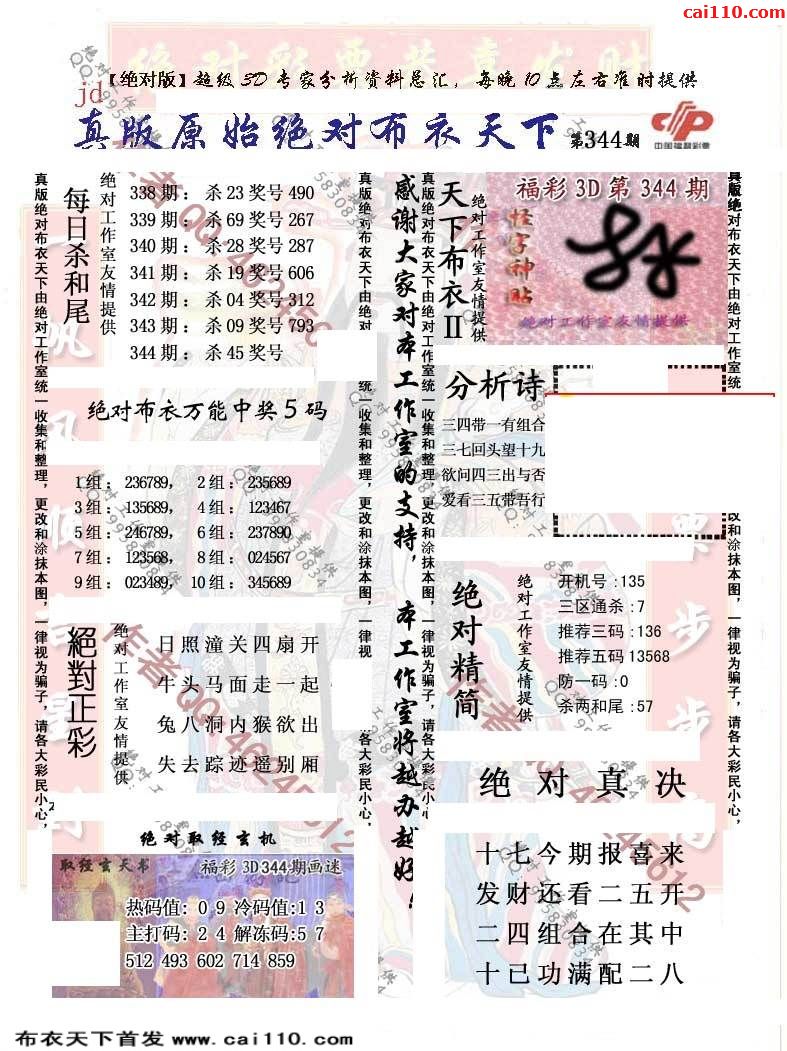 cai110.com
【绝对版】超级3D专家分析资料总汇，每晚10点左右准时提供
jd
真版原始绝对布衣天下
第344期
中国福利彩票
真版绝对布衣天下由绝对工作室统一收集和整理，更改和涂抹本图，一律视为骗子，请各大彩民小心，
每日杀和尾
绝对工作室友情提供
338期：杀23奖号490
339期：杀69奖号267
340期：杀28奖号287
341期：杀19奖号606
342期：杀04奖号312
343期：杀09奖号793
344期：杀45奖号
绝对布衣万能中奖5码
1组：236789， 2组：235689
3组：135689， 4组：123467
5组：246789， 6组：237890
7组：123568， 8组：024567
9组：023489， 10组：345689
絕對正彩
绝对工作室友情提供
日照潼关四扇开
牛头马面走一起
兔八洞内猴欲出
失去踪迹遥别厢
绝对取经玄机
取经玄天书
福彩3D344期画迷
热码值：09冷码值:13
主打码：24解冻码:57
512 493 602 714 859
真版绝对布衣天下由绝对
统一收集和整理，更改和涂抹本图，一律视
各大彩民小心，
感谢大家对本工作室的支持，本工作室将越办越好！
真版绝对布衣天下由绝对工作室统一收集和整理，更改和涂抹本图，一律视为骗子，请各大彩民小心
天下布衣II
绝对工作室友情提供
福彩3D第344期
怪字神贴
绝对工作室友情提供
分析诗
三四带一有组合
三七回头望十九
欲问四三出与否
爱看三五带吾行
绝对精简
绝对工作室友情提供
开机号:135
三区通杀:7
推荐三码:136
推荐五码13568
防一码:0
杀两和尾:57
绝对真决
十七今期报喜来
发财还看二五开
二四组合在其中
十已功满配二八
真版绝对布衣天下由绝对工作室统一收集和整理，
改和涂抹本图，一律视为骗子，请各大彩民小心，
布衣天下首发 www.cai110.com